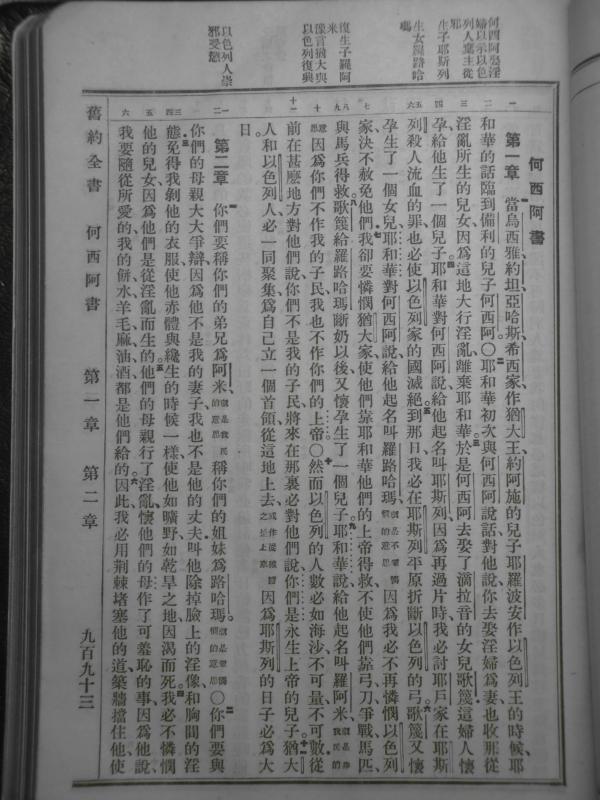 何西阿娶淫
婦以示以色
列人棄主從
邪
生子耶斯列
生女羅路哈
瑪
復生子羅阿
米
預言猶大與
以色列復興
以色列人崇
邪受懲
何西阿書
一
第一章 當烏西雅約坦亞哈斯希西家作猶大王約阿施的兒子耶羅波安作以色列王的時候、耶
二
和華的話臨到備利的兒子何西阿。〇耶和華初次與何西阿說話對他說你去娶淫婦爲妻也收那從
三
淫亂所生的兒女因爲這地大行淫亂離棄耶和華於是何西阿去娶了滴拉音的女兒歌篾這婦人懷
四
孕給他生了一個兒子耶和華對何西阿說給他起名叫耶斯列因爲再過片時我必討耶戶家在耶斯
五六
列殺人流血的罪也必使以色列家的國滅絕到那日我必在耶斯列平原折斷以色列的弓歌篾又懷
孕生了一個女兒耶和華對何西阿說給他起名叫羅路哈瑪就是不蒙憐憫的意思因爲我必不再憐憫以色列
七
家決不赦免他們我卻要憐憫猶大家使他們靠耶和華他們的上帝得救不使他們靠弓刀爭戰馬匹、
八九
與馬兵得救歌篾給羅路哈瑪斷奶以後又懷孕生了一個兒子耶和華說給他起名叫羅阿米就是非我民的
十
意思因爲你們不作我的子民我也不作你們的上帝〇然而以色列的人數必如海沙不可量不可數從
十一
前在甚麽地方對他們說你們不是我的子民將來在那裏必對他們說你們是永生上帝的兒子猶大
人和以色列人必一同聚集爲自己立一個首領從這地上去因爲耶斯列的日子必爲大
日。
一二
第二章 你們要稱你們的弟兄爲阿米就是我民的意思稱你們的姐妹爲路哈瑪。就是蒙憐憫的意思〇你們要與
你們的母親大大爭辯因爲他不是我的妻子我也不是他的丈夫叫他除掉臉上的淫像和胸間的淫
三四
態免得我剝他的衣服使他赤體與纔生的時候一樣使他如曠野如乾旱之地因渴而死我必不憐憫
五
他的兒女因爲他們是從淫亂而生的他們的母親行了淫亂懷他們的母作了可羞恥的事因爲他說、
六
我要隨從所愛的我的餅水羊毛麻油酒都是他們給的因此我必用荆棘堵塞他的道築牆擋住他使
舊約全書 何西阿書 第一章 第二章 九百九十三